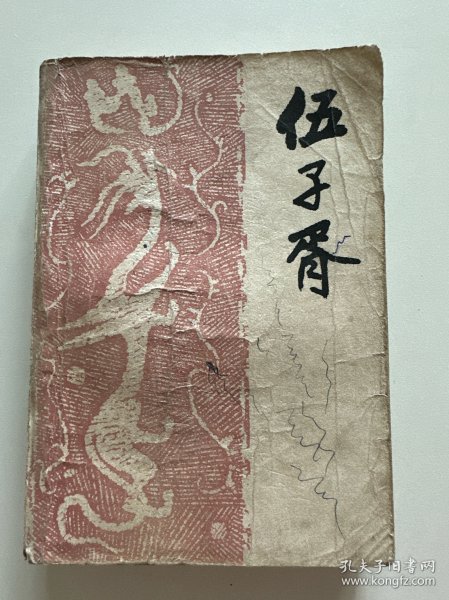 伍子胥
孔夫子旧书网
www.kongfz.com